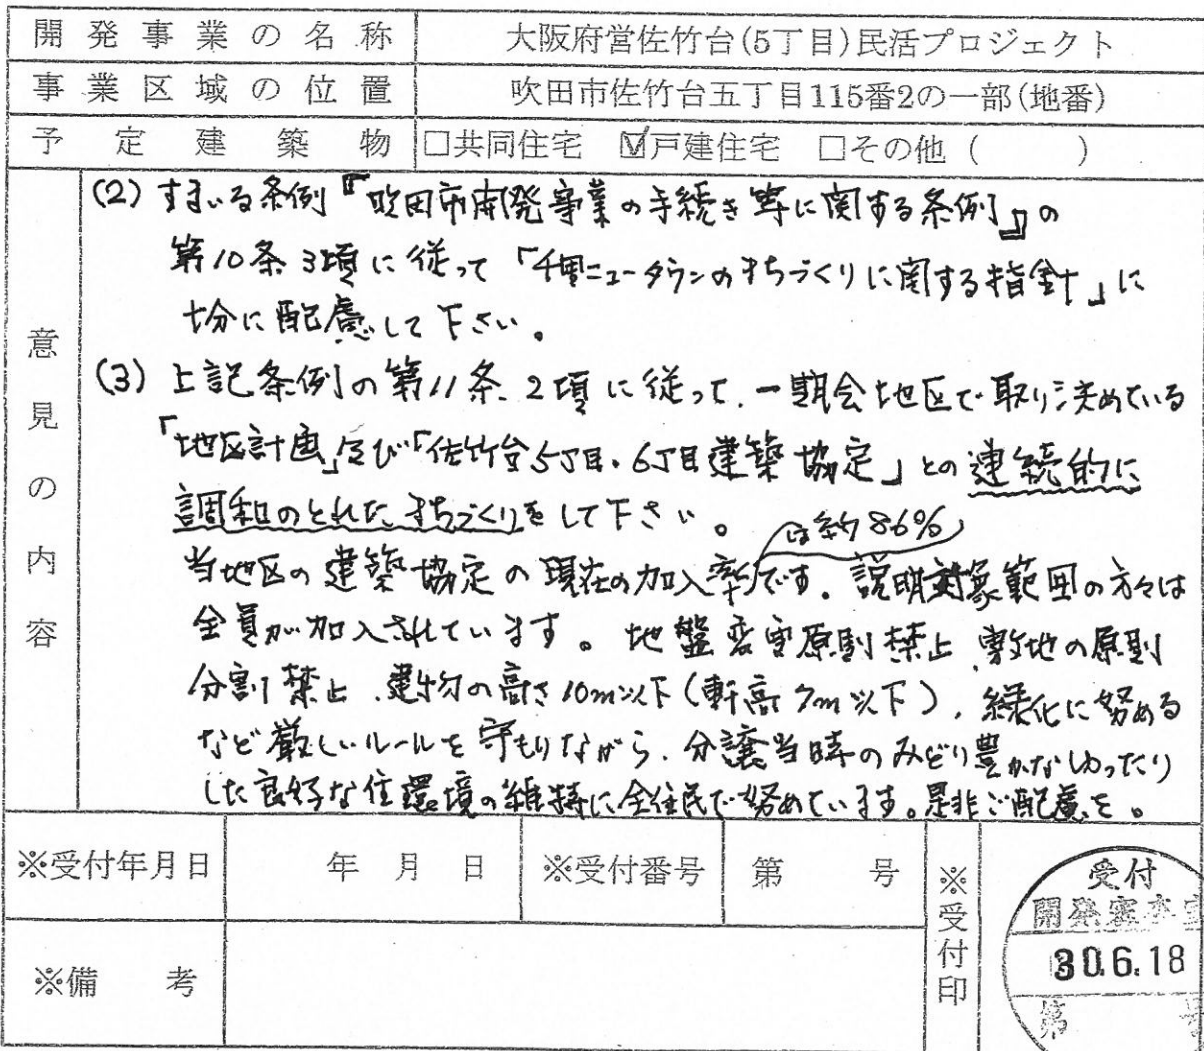 開発事業の名称 大阪府営佐竹台(5丁目)民活プロジェクト
事業区域の位置 吹田市佐竹台五丁目115番2の一部(地番)
予定建築物 □共同住宅 ☑戸建住宅 □その他( )
意見の内容
(2) すまいる条例『吹田市開発事業の手続き等に関する条例』の
第10条3項に従って「千里ニュータウンのまちづくりに関する指針」に
十分に配慮して下さい。
(3) 上記条例の第11条、2項に従って、一期会地区で取り決めている
「地区計画」及び「佐竹台5丁目、6丁目建築協定」との連続的に
調和のとれたまちづくりをして下さい。
は約86%
当地区の建築協定の現在の加入率です。説明対象範囲の方々は
全員が加入されています。地盤変更原則禁止、敷地の原則
分割禁止、建物の高さ10m以下(軒高7m以下)、緑化に努める
など厳しいルールを守もりながら、分譲当時のみどり豊かなゆったり
した良好な住環境の維持に全住民で努めています。是非ご配慮を。
※受付年月日 年 月 日 ※受付番号 第 号 ※受付印
※備考
受付
開発審査室
30.6.18
第 号